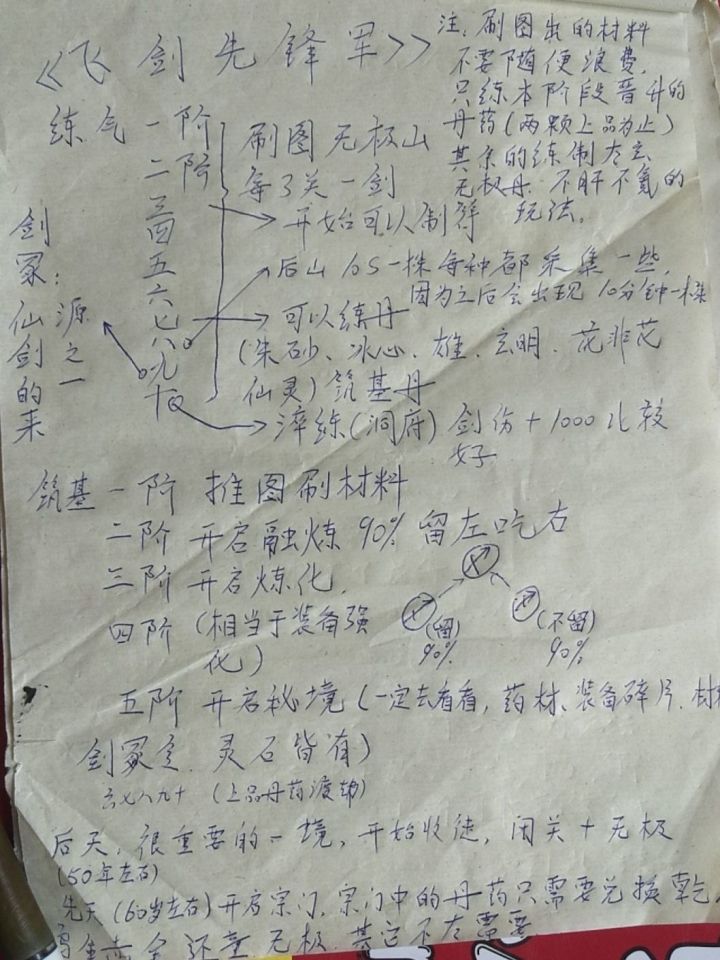 《飞剑先锋军》
注:刷图出的材料
不要随便浪费,
只练本阶段晋升的
丹药(两颗上品为止)
其余的练制
无极丹.不肝不氪的
玩法.
练气一阶
二阶
三
四
五
六
七
八
九
十
刷图无极山
每了关一剑
开始可以制符
后山 10S一株每种都采集一些,
因为之后会出现10分钟一株
可以练丹
(朱砂、冰心、雄、玄明、花非花
仙灵)筑基丹
淬练(洞府)剑伤+1000比较
好
剑冢:
仙剑的来
源之一
筑基一阶 推图刷材料
二阶 开启融炼 90% 留左吃右
三阶 开启炼化.
四阶 (相当于装备强
化)
(留)
90%
(不留)
90%
五阶 开启秘境(一定去看看,药材、装备碎片.材
剑冢.灵石皆有)
六七八九十 (上品丹药渡劫)
后天,很重要的一境,开始收徒,闭关+无极
(50年左右)
先天(60岁左右)开启宗门,宗门中的丹药只需要兑换
还童 无极.其它不太需要